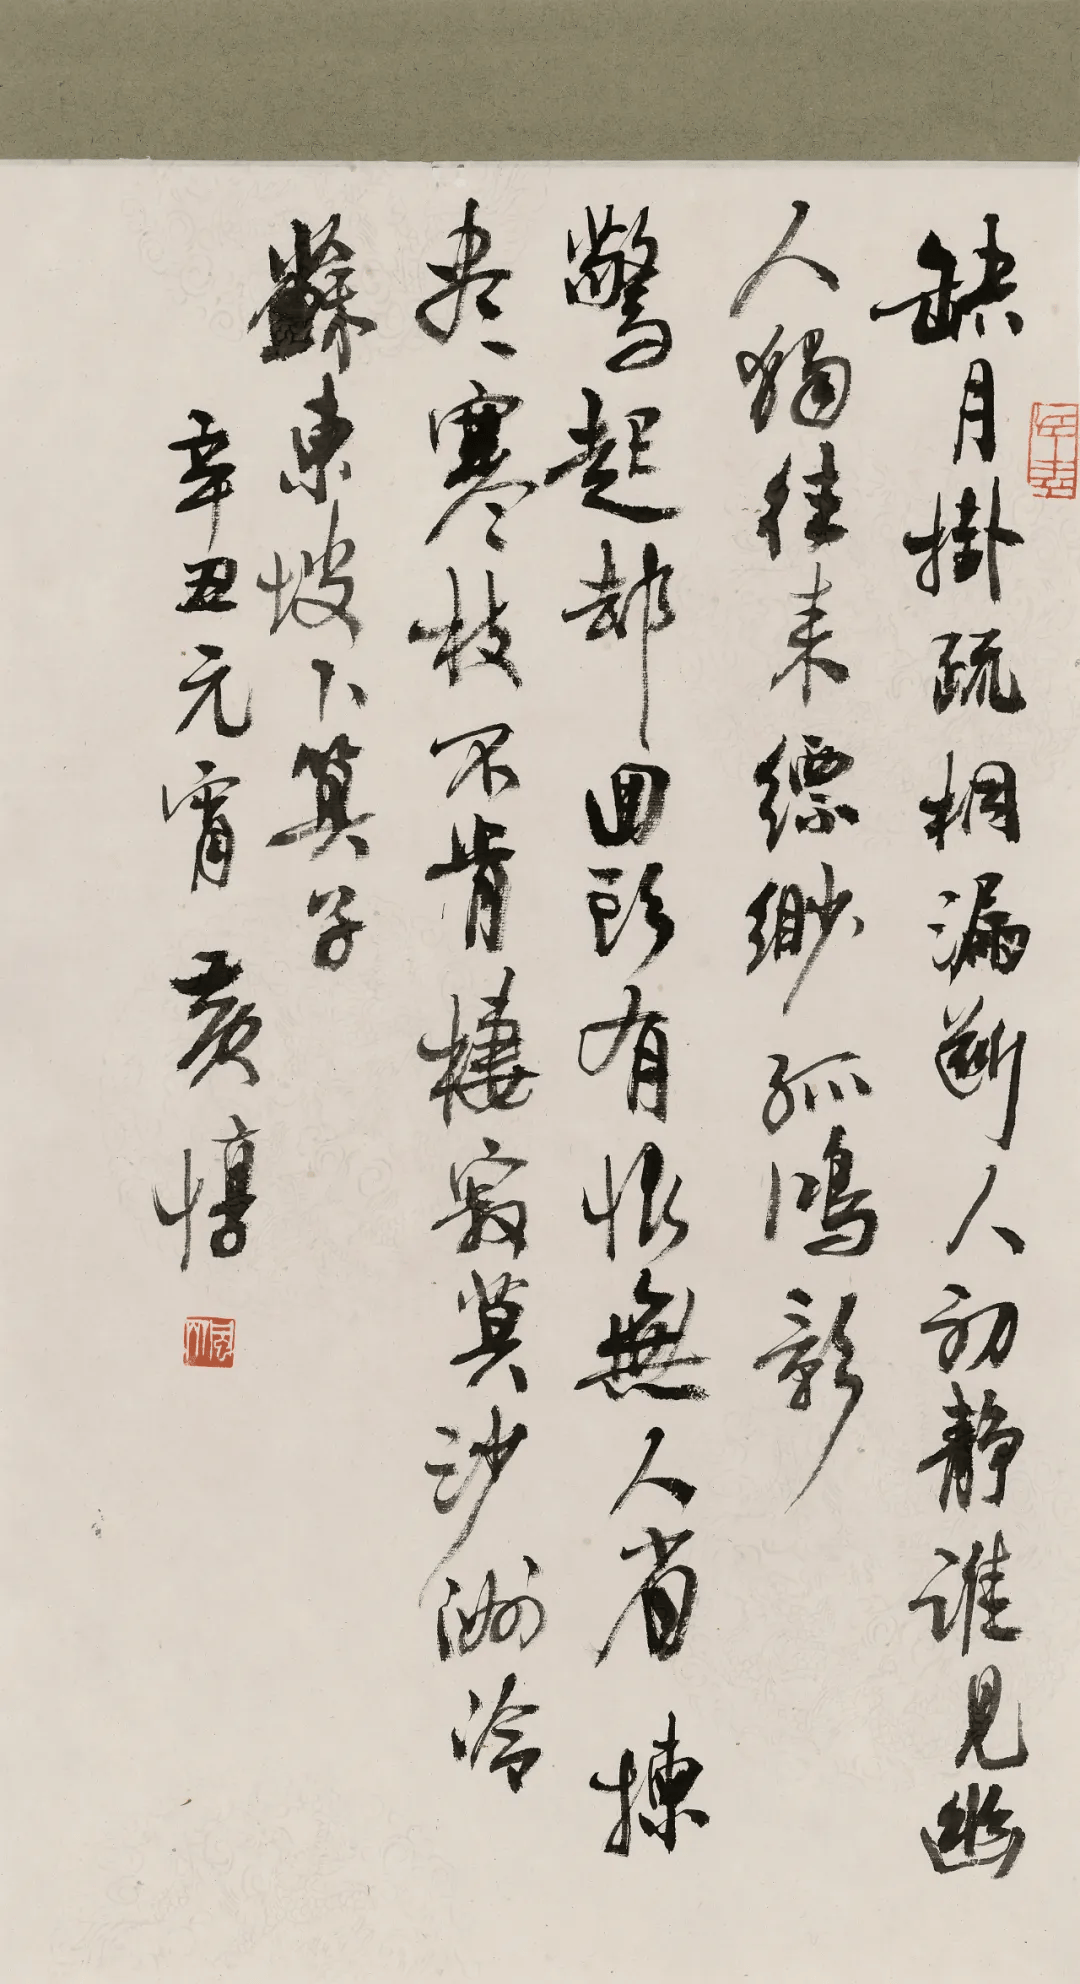 缺月掛疏桐漏斷人初靜誰見幽
人獨往來縹緲孤鴻影
驚起却回頭有恨無人省揀
盡寒枝不肯棲寂莫沙洲冷
蘇東坡卜算子
辛丑元宵 黃惇